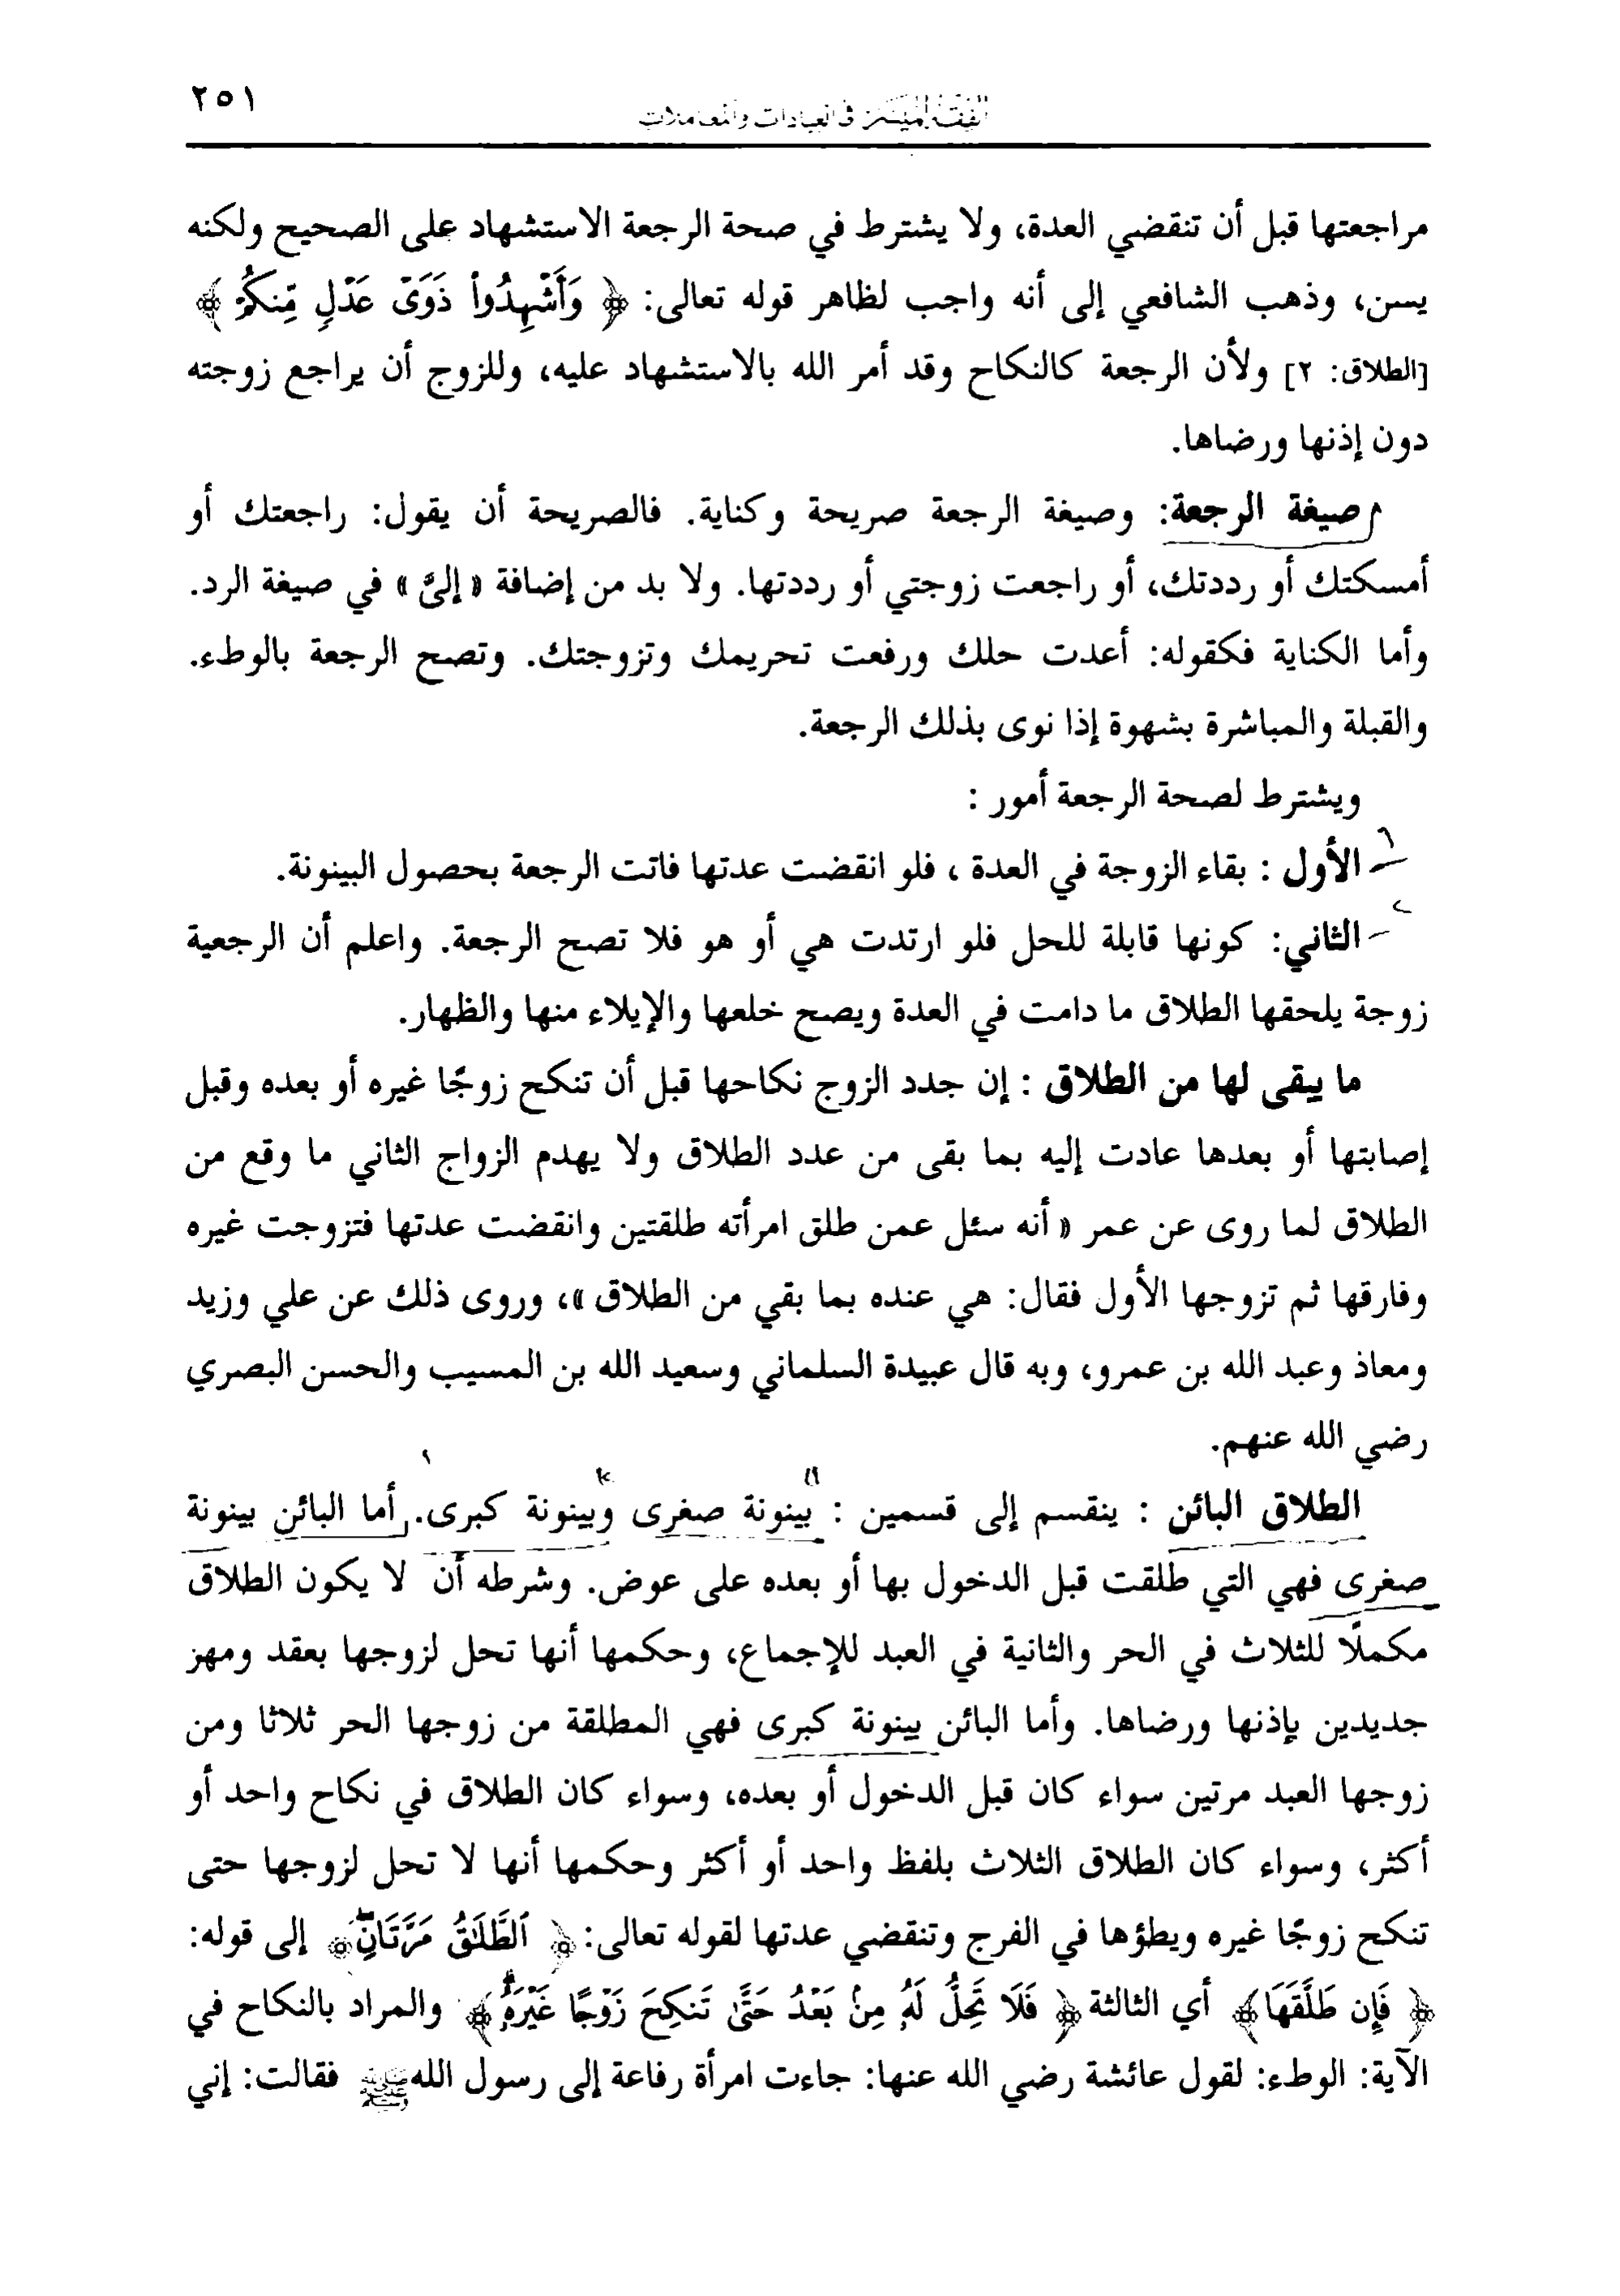 ٢٥١
الفقه الميسر في العبادات والمعاملات
مراجعتها قبل أن تنقضي العدة، ولا يشترط في صحة الرجعة الاستشهاد على الصحيح ولكنه
يسن، وذهب الشافعي إلى أنه واجب لظاهر قوله تعالى: ﴿ وَأَشْهِدُوا۟ ذَوَىْ عَدْلٍ مِّنكُمْ ﴾
[الطلاق: ٢] ولأن الرجعة كالنكاح وقد أمر الله بالاستشهاد عليه، وللزوج أن يراجع زوجته
دون إذنها ورضاها.
صيغة الرجعة: وصيغة الرجعة صريحة وكناية. فالصريحة أن يقول: راجعتك أو
أمسكتك أو رددتك، أو راجعت زوجتي أو رددتها. ولا بد من إضافة « إلىَّ » في صيغة الرد.
وأما الكناية فكقوله: أعدت حلك ورفعت تحريمك وتزوجتك. وتصح الرجعة بالوطء.
والقبلة والمباشرة بشهوة إذا نوى بذلك الرجعة.
ويشترط لصحة الرجعة أمور :
١
الأول : بقاء الزوجة في العدة ، فلو انقضت عدتها فاتت الرجعة بحصول البينونة.
الثاني: كونها قابلة للحل فلو ارتدت هي أو هو فلا تصح الرجعة. واعلم أن الرجعية
زوجة يلحقها الطلاق ما دامت في العدة ويصح خلعها والإيلاء منها والظهار.
ما يبقى لها من الطلاق : إن جدد الزوج نكاحها قبل أن تنكح زوجًا غيره أو بعده وقبل
إصابتها أو بعدها عادت إليه بما بقى من عدد الطلاق ولا يهدم الزواج الثاني ما وقع من
الطلاق لما روى عن عمر « أنه سئل عمن طلق امرأته طلقتين وانقضت عدتها فتزوجت غيره
وفارقها ثم تزوجها الأول فقال: هي عنده بما بقي من الطلاق »، وروى ذلك عن علي وزيد
ومعاذ وعبد الله بن عمرو، وبه قال عبيدة السلماني وسعيد الله بن المسيب والحسن البصري
رضي الله عنهم.
الطلاق البائن : ينقسم إلى قسمين : بينونة صغرى وبينونة كبرى. أما البائن بينونة
صغرى فهي التي طلقت قبل الدخول بها أو بعده على عوض. وشرطه أن لا يكون الطلاق
مكملًا للثلاث في الحر والثانية في العبد للإجماع، وحكمها أنها تحل لزوجها بعقد ومهز
جديدين بإذنها ورضاها. وأما البائن بينونة كبرى فهي المطلقة من زوجها الحر ثلاثا ومن
زوجها العبد مرتين سواء كان قبل الدخول أو بعده، وسواء كان الطلاق في نكاح واحد أو
أكثر، وسواء كان الطلاق الثلاث بلفظ واحد أو أكثر وحكمها أنها لا تحل لزوجها حتى
تنكح زوجًا غيره ويطؤها في الفرج وتنقضي عدتها لقوله تعالى: ﴿ ٱلطَّلَٰقُ مَرَّتَانِ ﴾ إلى قوله:
﴿ فَإِن طَلَّقَهَا ﴾ أي الثالثة ﴿ فَلَا تَحِلُّ لَهُۥ مِنۢ بَعْدُ حَتَّىٰ تَنكِحَ زَوْجًا غَيْرَهُۥ ﴾ والمراد بالنكاح في
الآية: الوطء: لقول عائشة رضي الله عنها: جاءت امرأة رفاعة إلى رسول الله ﷺ فقالت: إني